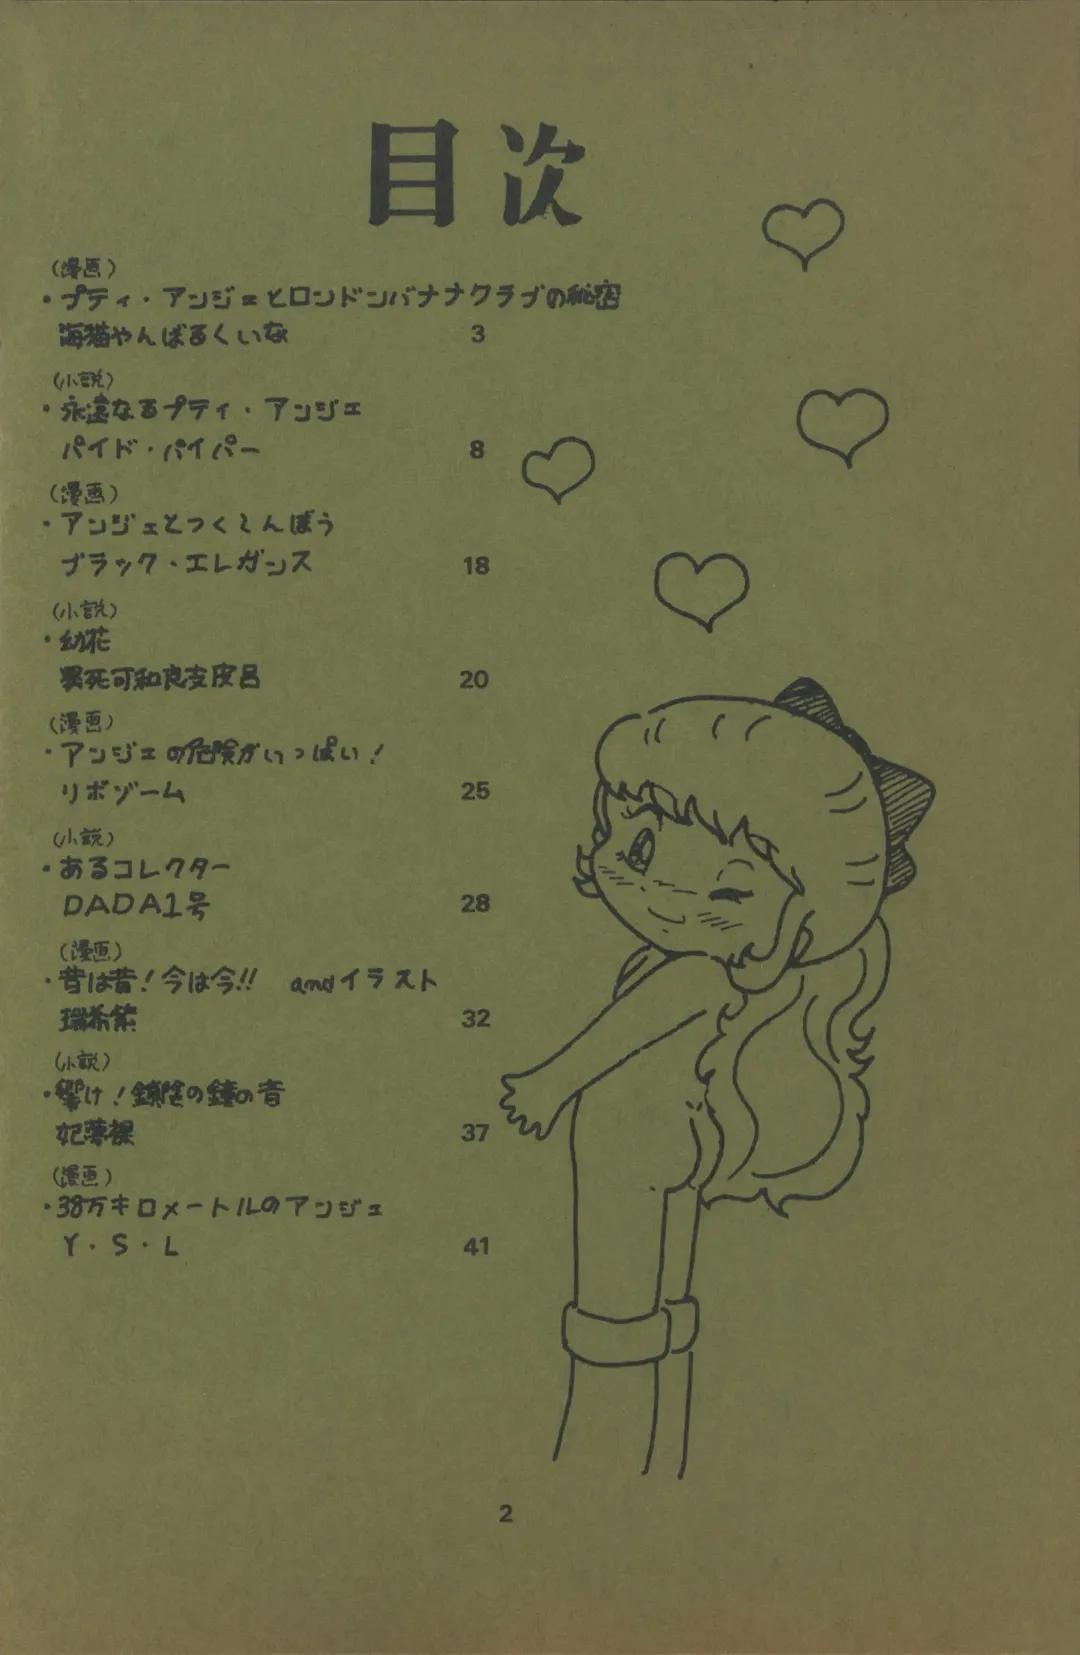 目次
(漫画)
・プティ・アンジェとロンドンバナナクラブの秘密
海猫やんばるくいな 3
(小説)
・永遠なるプティ・アンジェ
パイド・パイパー 8
(漫画)
・アンジェとつくしんぼう
ブラック・エレガンス 18
(小説)
・幼花
死可和良支皮呂 20
(漫画)
・アンジェの危険がいっぱい!
リボゾーム 25
(小説)
・あるコレクター
DADA1号 28
(漫画)
・昔は昔!今は今!! andイラスト
瑞希紫 32
(小説)
・響け!鎮陰の鐘の音
妃薄裸 37
(漫画)
・38万キロメートルのアンジェ
Y・S・L 41
2